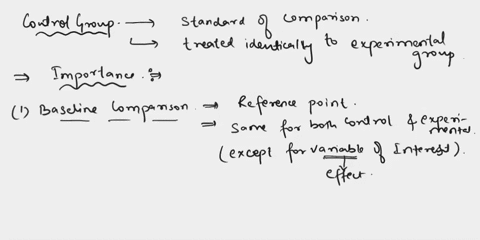 Control Group → Standard of comparison.
↳ treated identically to experimental group.
⇒ Importance :⇒
(1) Baseline Comparison → Reference point.
⇒ Same for both control & experimental
(except for variable of Interest).
effect.